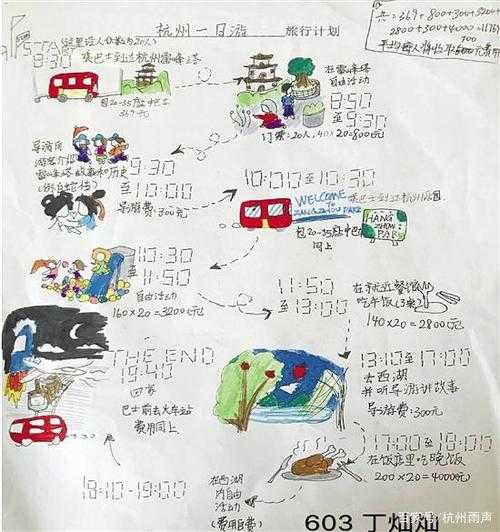 杭州一日游 旅行计划
共=369+800+300+3200+
2800+300+4000=11769
START
(这里设人份数为20人)
8:30 乘巴士到达杭州雷峰塔
包20-35座中巴士
369元
在雷峰塔
自由活动
8:50
至
9:30
门票:20人,40×20=800元
导游向
游客介绍
雷峰塔故事和历史
(例:白蛇传)
9:30
至
10:00
导游费:300元
10:00至10:30
乘巴士到达杭州乐园
WELCOME
TO
HANGZHOU PARK
HANG
ZHOU
PARK
包20-35座中巴
同上
10:30
至
11:50
自由活动
160×20=3200元
11:50
至13:00
在就近餐饮
吃午饭
140×20=2800元
13:10至17:00
去西湖
并听导游讲故事
导游费:300元
17:00至18:00
在饭店里吃晚饭
200×20=4000元
在西湖
内自由
活动
(费用自费)
18:10-19:00
THE END
19:40
回家
巴士前去火车站
费用同上
603
百家号/杭州雨声